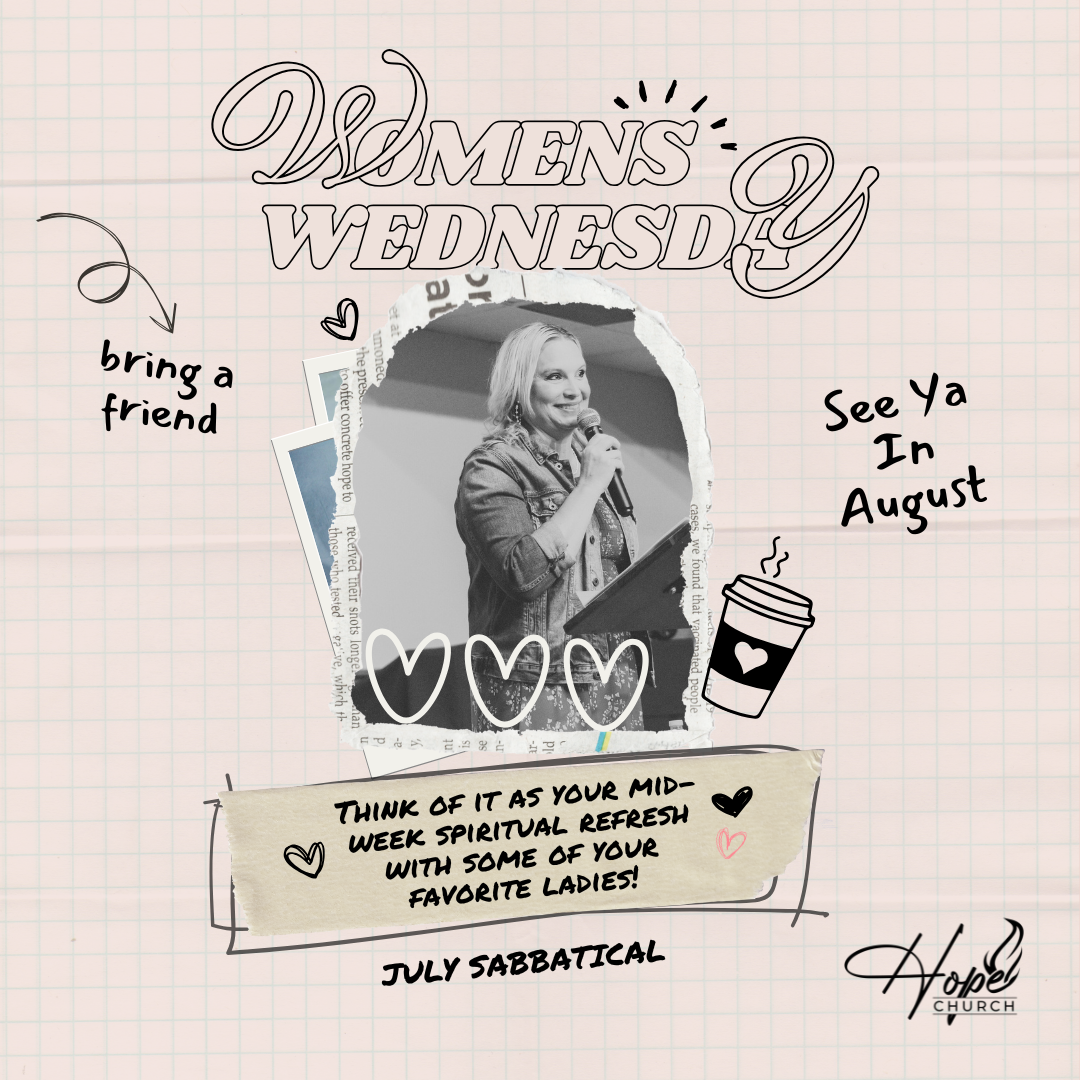 WOMENS
WEDNESDAY
bring a
friend
See Ya
In
August
or
at
to offer concrete hope to
received their shots longe
those who tested
cases, we found that vaccinated people
THINK OF IT AS YOUR MID-
WEEK SPIRITUAL REFRESH
WITH SOME OF YOUR
FAVORITE LADIES!
JULY SABBATICAL
Hope
CHURCH